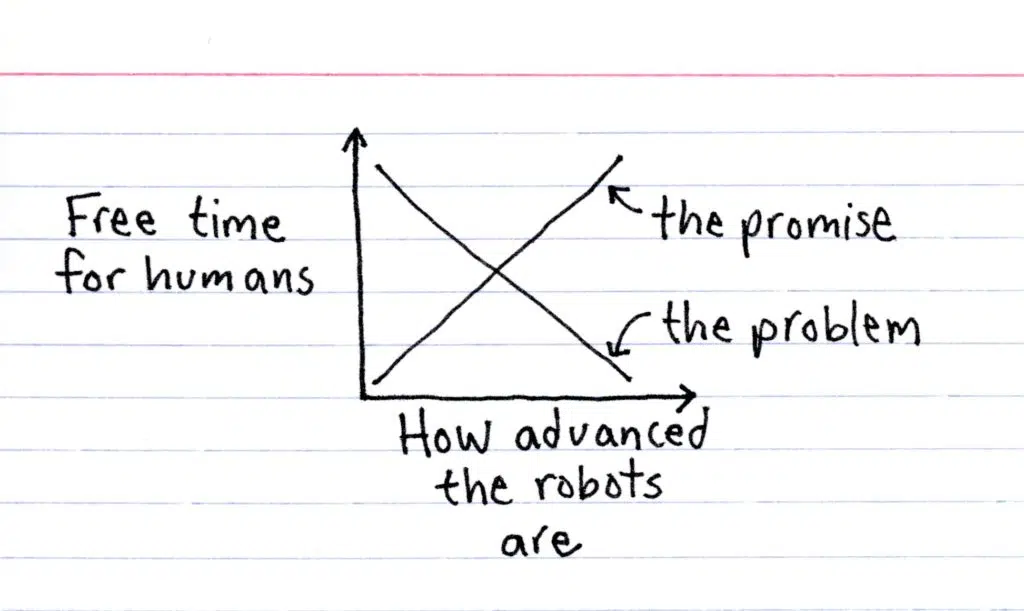 Free time
for humans
the promise
the problem
How advanced
the robots
are